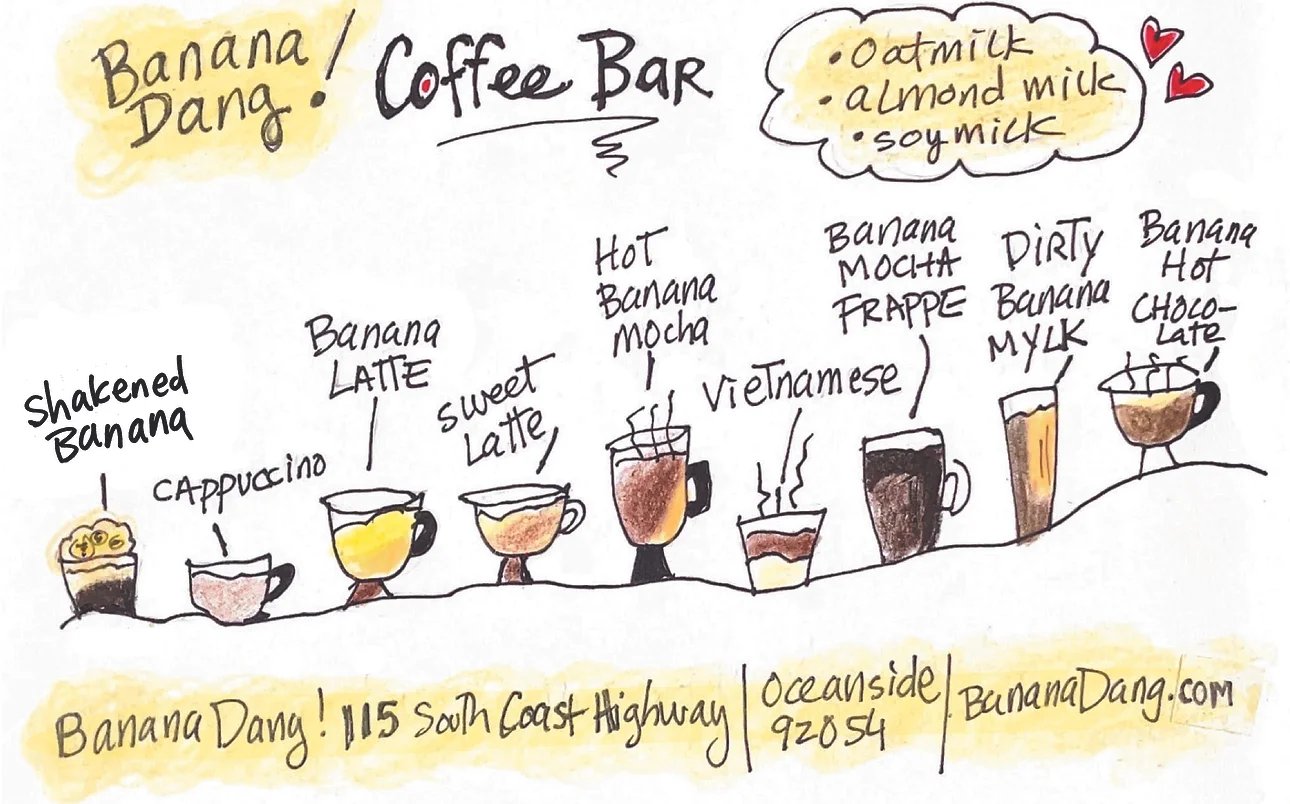 Banana
Dang!
Coffee Bar
•Oatmilk
•almond milk
•soymilk
shakened
Banana
CAppuccino
Banana
LATTE
sweet
Latte
Hot
Banana
mocha
VieTnamese
Banana
MOCHA
FRAPPE
DiRTy
Banana
MYLK
Banana
Hot
CHOCO-
Late
Banana Dang! 115 South Coast Highway | Oceanside | BananaDang.com
92054